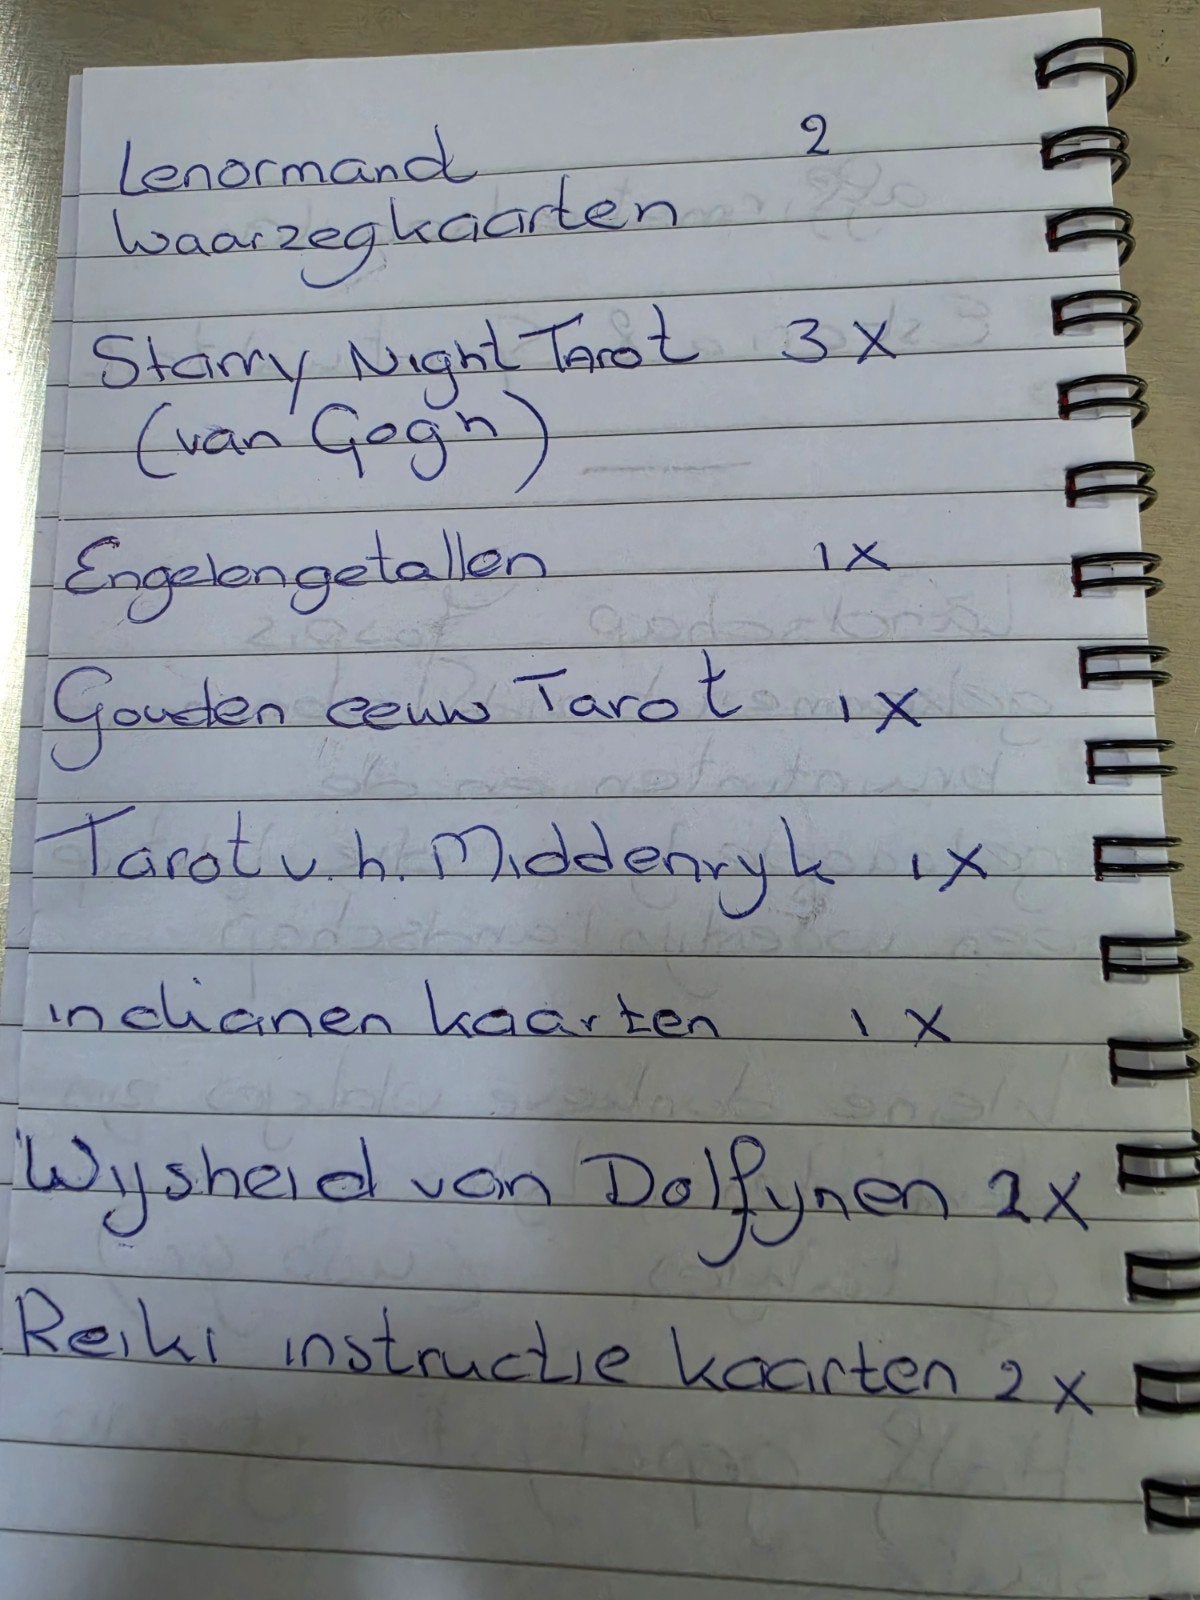 Lenormand 2
waarzegkaarten
Starry Night Tarot 3 X
(van Gogh)
Engelengetallen 1 X
Gouden eeuw Tarot 1 X
Tarot v. h. Middenryk 1 X
indianen kaarten 1 X
Wysheid van Dolfynen 2 X
Reiki instructie kaarten 2 X